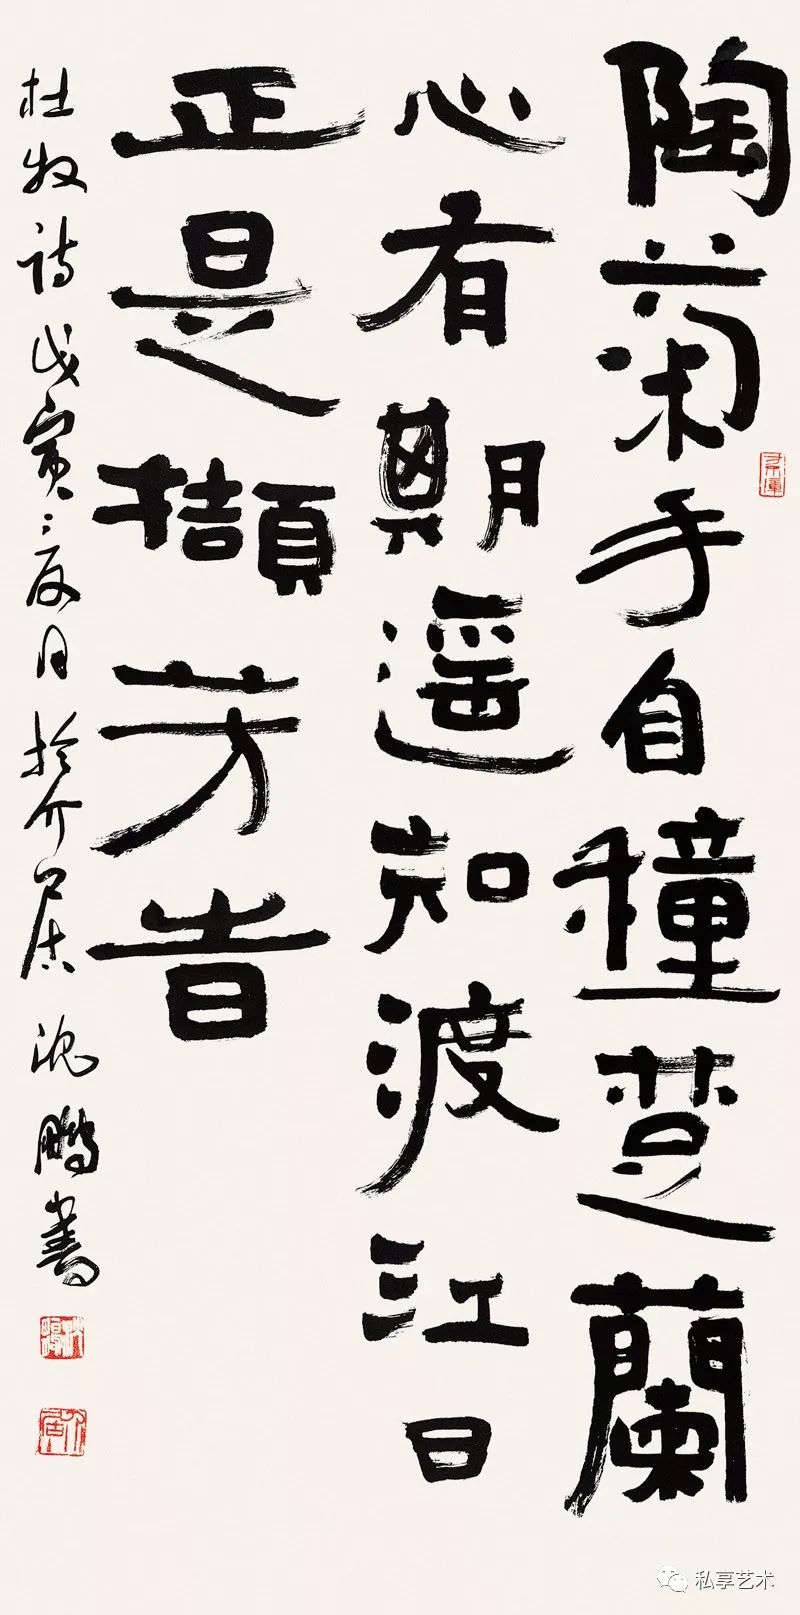 陶菊手自穜楚蘭
心有期遥知渡江日
正是擷芳旹
杜牧詩戊寅夏月於介居沈鵬書
私享艺术